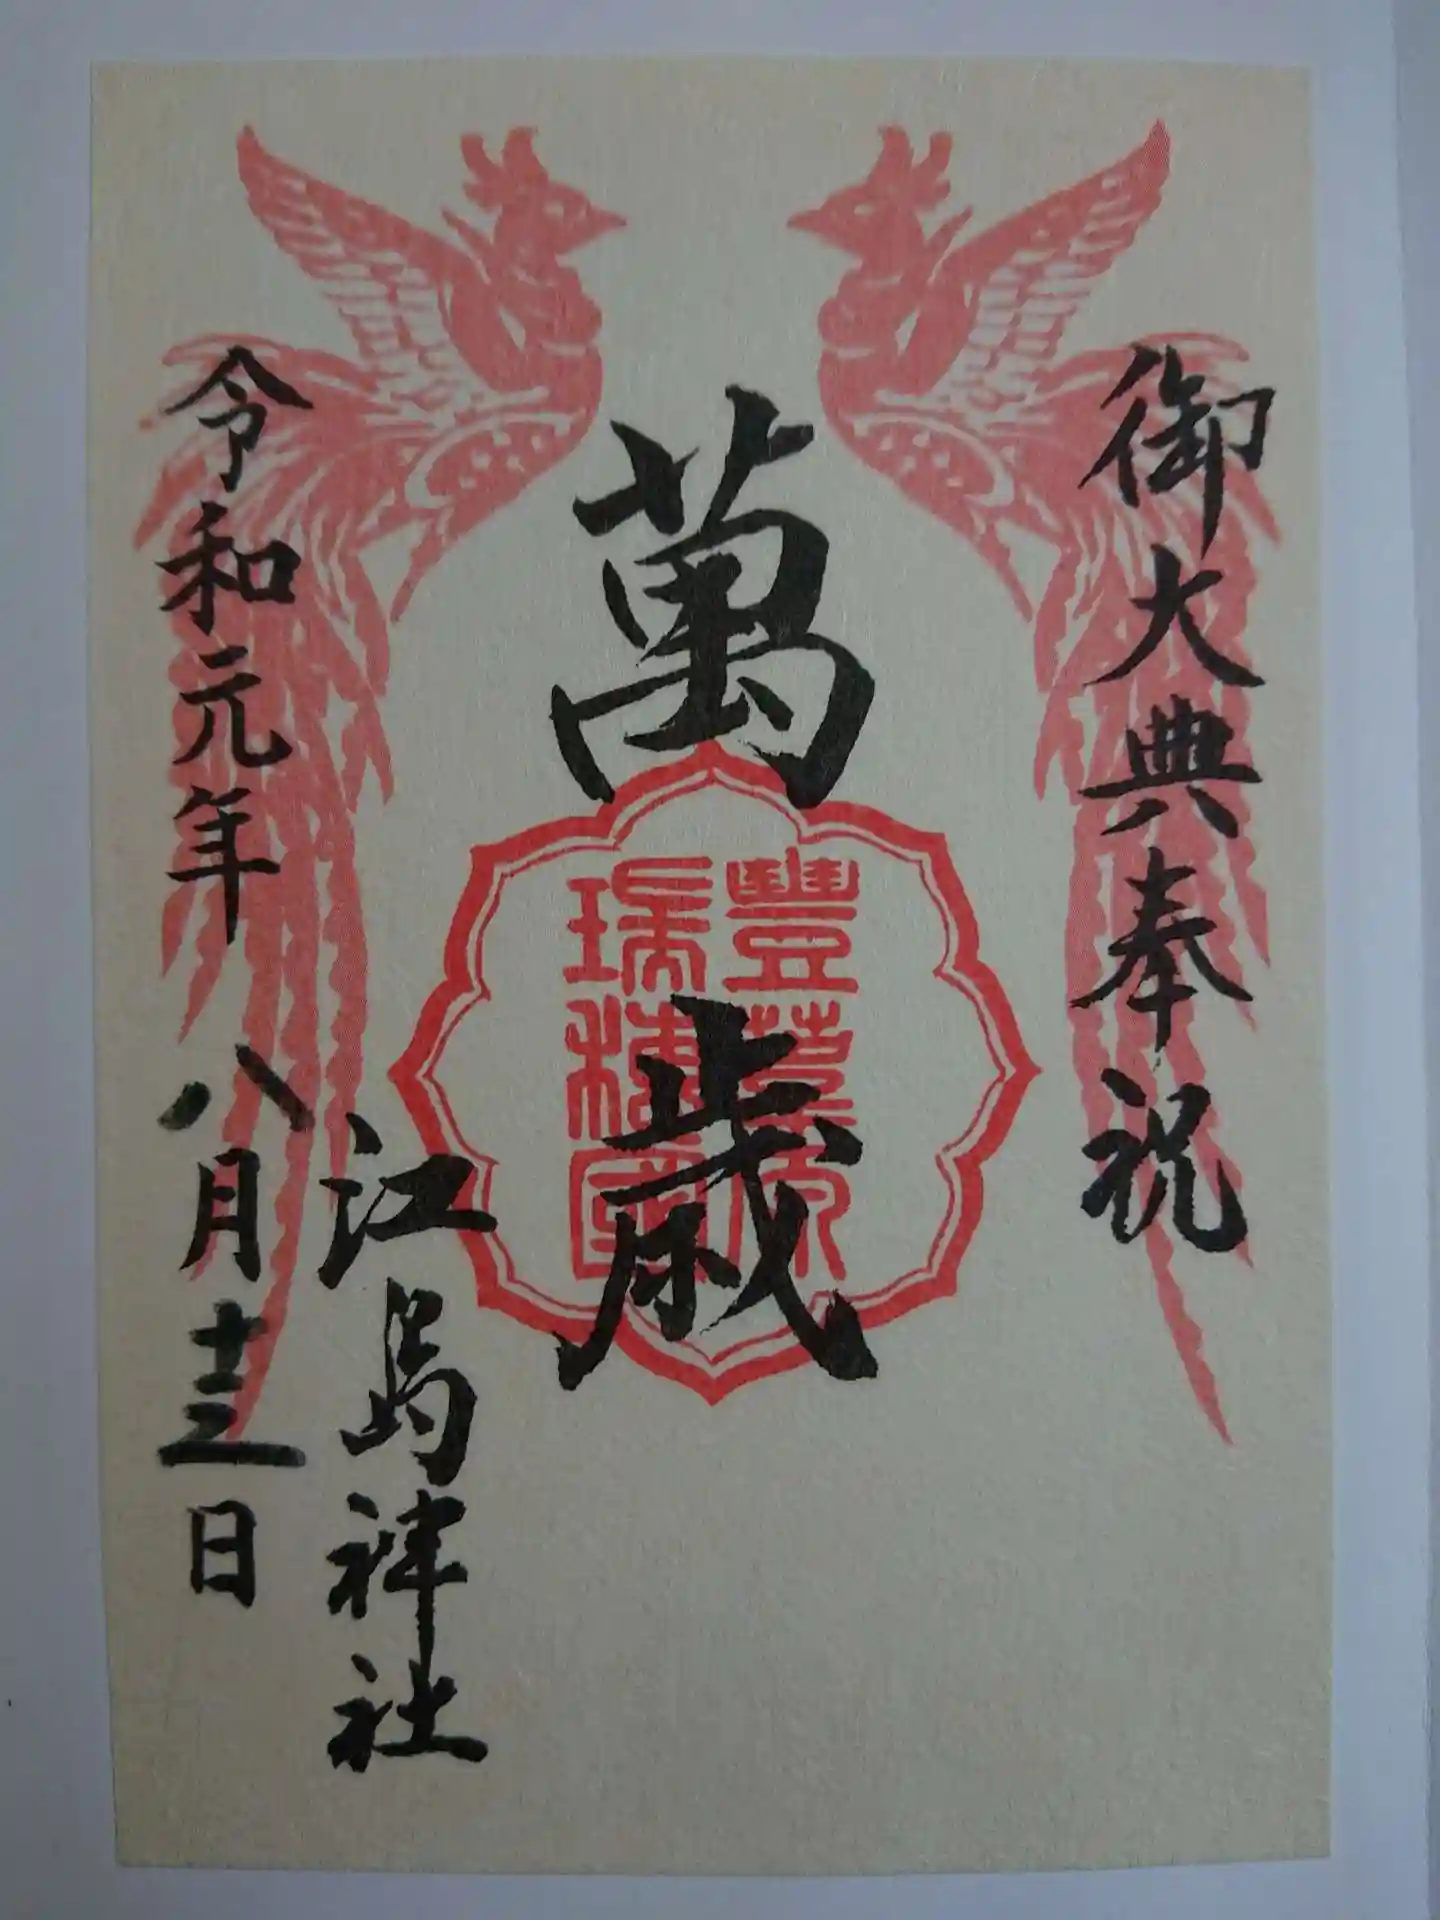 御大典奉祝
萬歳
豐葦原
瑞穂國
江島神社
令和元年八月十三日